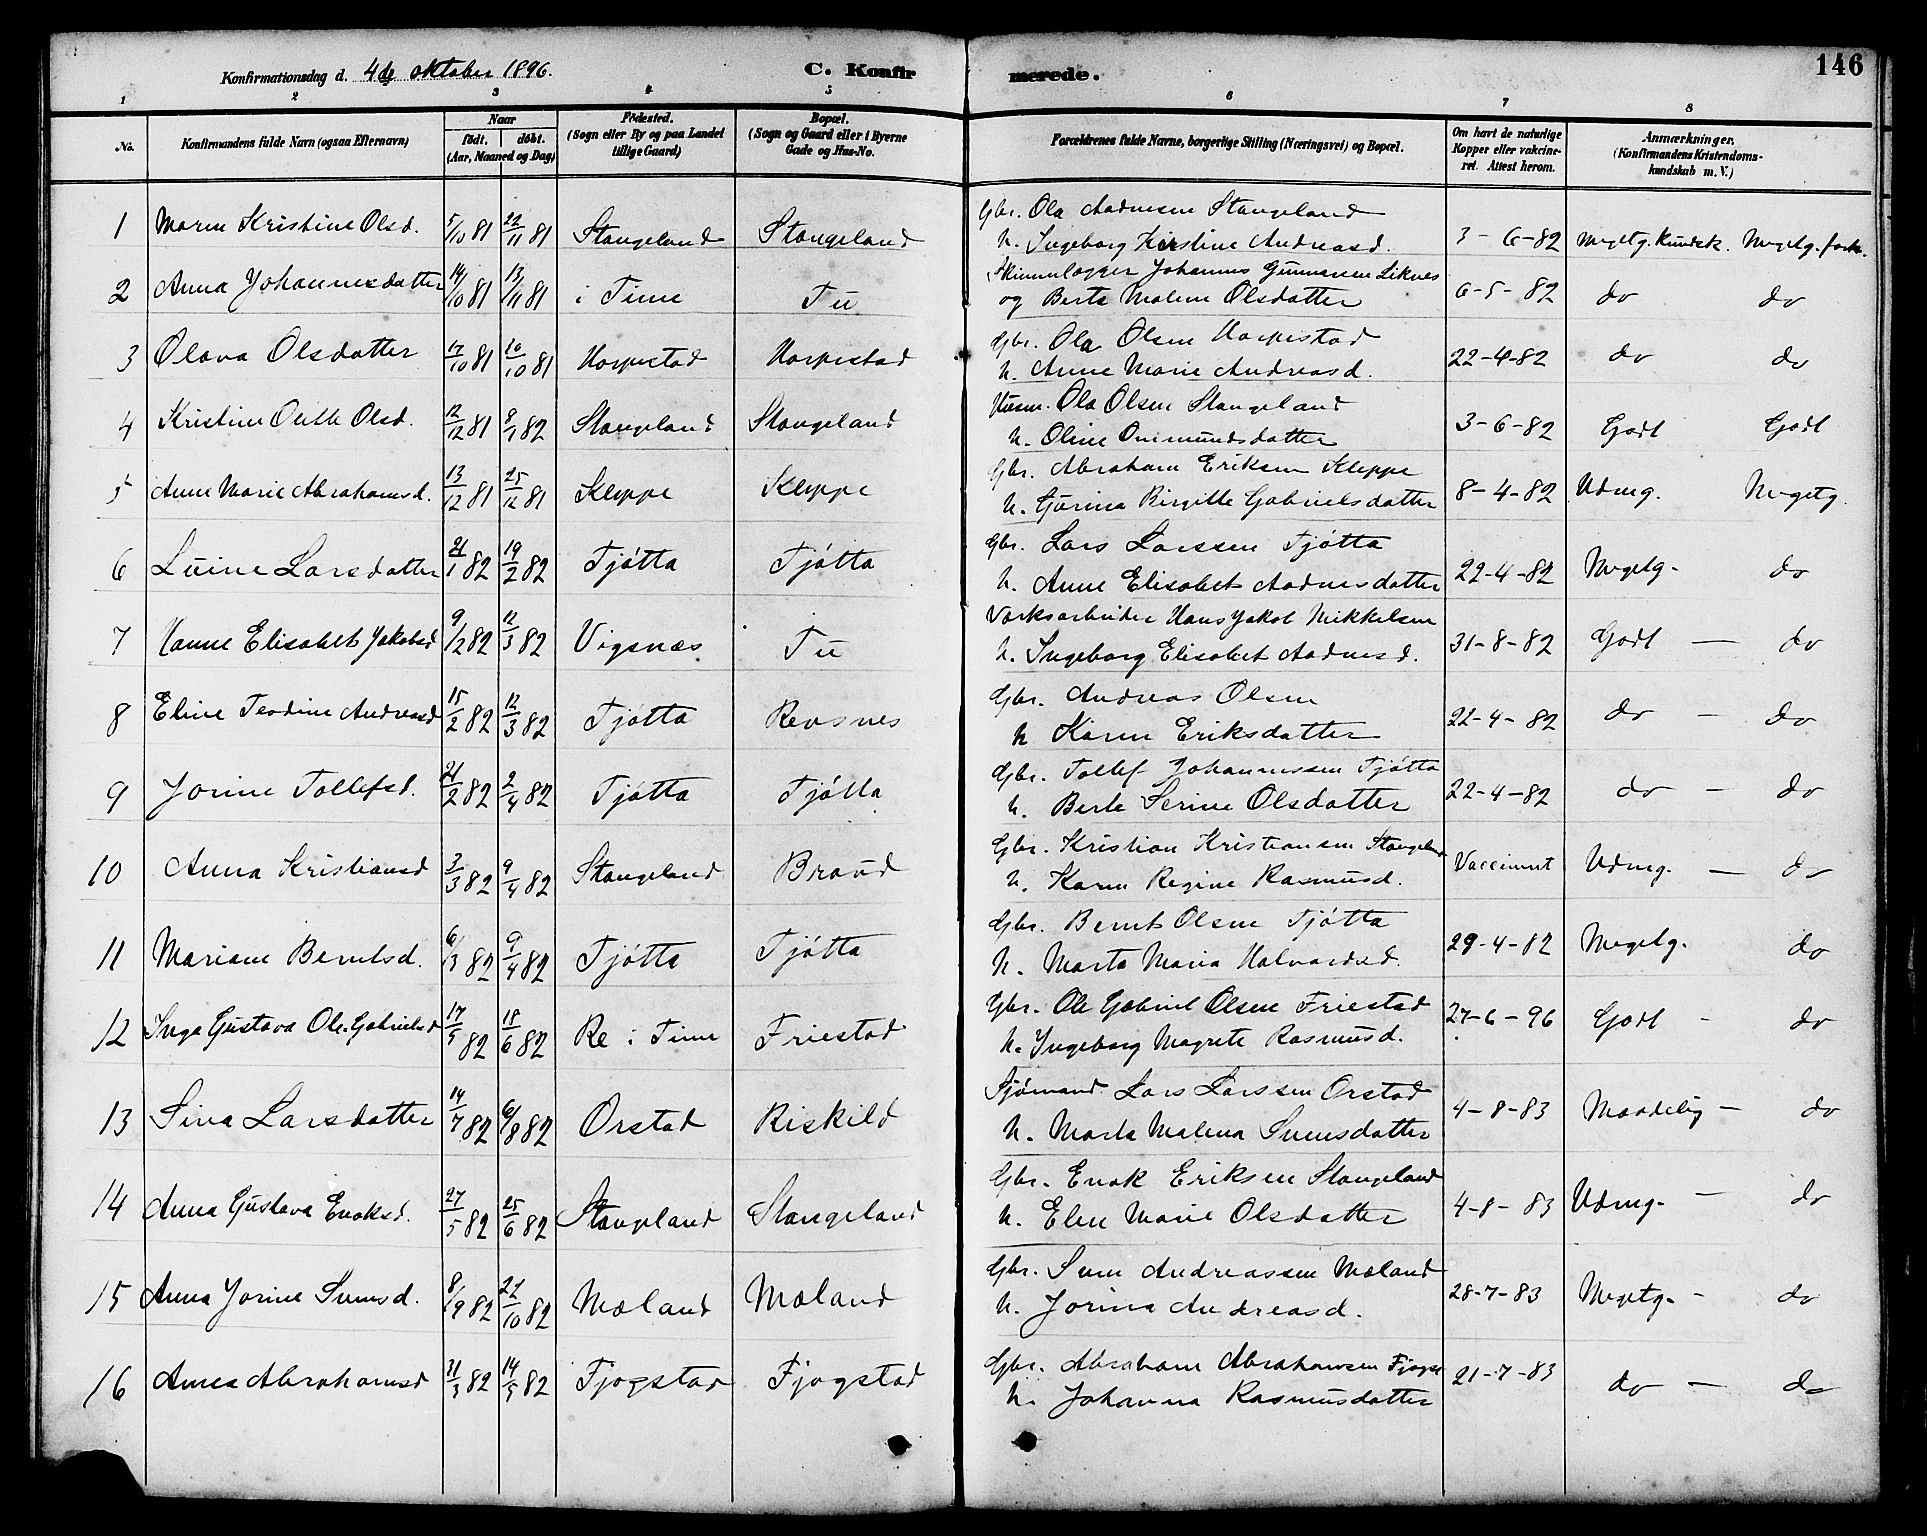 Konfirmationsdag d. 4de oktober 1896.
C. Konfirmerede.
146
1 2 3 4 5 6 7 8
No. Konfirmandens fulde Navn (ogsaa Efternavn) Naar født. døbt. (Aar, Maaned og Dag) Fødested. (Sogn eller By og paa Landet tillige Gaard) Bopæl. (Sogn og Gaard eller i Byerne Gade og Hus-No. Forældrenes fulde Navne, borgerlige Stilling (Næringsvei) og Bopæl. Om havt de naturlige Kopper eller vakcineret. Attest herom. Anmærkninger. (Konfirmandens Kristendomskundskab m. V.)
1 Maren Kristine Olsd. 5/10 81 22/11 81 Stangeland Stangeland Gbr. Ola Aadnesen Stangeland
h. Ingeborg Kirstine Andreasd. 3-6-82 Megetg. Kundsk. Megetg. forh.
2 Anna Johannesdatter 14/10 81 13/11 81 i Time Tu Skinnlogger Johannes Gunnarsen Liknes
og Berta Malene Olsdatter 6-5-82 do do
3 Olava Olsdatter 17/10 81 16/10 81 Horpestad Horpestad Gbr. Ola Olsen Horpestad
h. Anne Marie Andreasd. 22-4-82 do do
4 Kristine Olsd. 12/12 81 9/1 82 Stangeland Stangeland Husm. Ola Olsen Stangeland
h. Oline Omundsdatter 3-6-82 Godt Godt
5 Anne Marie Abrahamsd. 13/12 81 25/12 81 Kleppe Kleppe Gbr. Abraham Eriksen Kleppe
h. Gurina Birgitte Gabrielsdatter 8-4-82 Udmg. Megetg.
6 Luine Larsdatter 21/1 82 19/2 82 Tjøtta Tjøtta Gbr. Lars Larssen Tjøtta
h. Anne Elisabet Aadnesdatter 22-4-82 Megetg. do
7 Hanne Elisabet Jakobsd 9/2 82 12/3 82 Vigsnæs Tu Værksarbeider Hans Jakob Mikkelsen
h. Ingeborg Elisabet Aadnesd. 31-8-82 Godt — do
8 Eline Teodine Andreasd 15/2 82 12/3 82 Tjøtta Revsnes Gbr. Andreas Olsen
h Karen Eriksdatter 22-4-82 do - do
9 Jorine Tollefsd. 21/2 82 2/4 82 Tjøtta Tjøtta Gbr. Tollef Johannessen Tjøtta
h. Berte Serine Olsdatter 22-4-82 do - do
10 Anna Kristiansd 3/3 82 9/4 82 Stangeland Braud Gbr. Kristian Kristiansen Stangeland
h. Karen Regine Rasmusd. Vaccineret Udmg. — do
11 Mariane Berntsd. 6/3 82 9/4 82 Tjøtta Tjøtta Gbr. Bernt Olsen Tjøtta
h. Marta Maria Halvardsd. 29-4-82 Megetg. do
12 Inga Gustava Ole Gabrielsd 17/5 82 18/6 82 Re i Time Friestad Gbr. Ole Gabriel Olsen Friestad
h. Ingeborg Magrete Rasmusd. 27-6-96 Godt - do
13 Sina Larsdatter 14/7 82 6/8 82 Orstad Riskild Sjømand Lars Larssen Orstad
h. Marta Malena Svensdatter 4-8-83 Maadelig - do
14 Anna Gustava Enoksd. 27/5 82 25/6 82 Stangeland Stangeland Gbr. Enok Eriksen Stangeland
h. Elen Marie Olsdatter 4-8-83 Udmg. — do
15 Anna Jorine Svensd. 8/9 82 22/10 82 Mæland Mæland Gbr. Sven Andreassen Mæland
h. Jorina Andreasd. 28-7-83 Megetg. - do
16 Anna Abrahamsd 31/3 82 14/5 82 Fjogstad Fjogstad Gbr. Abraham Abrahamsen Fjogst
h. Johanna Rasmusdatter 21-7-83 do — do